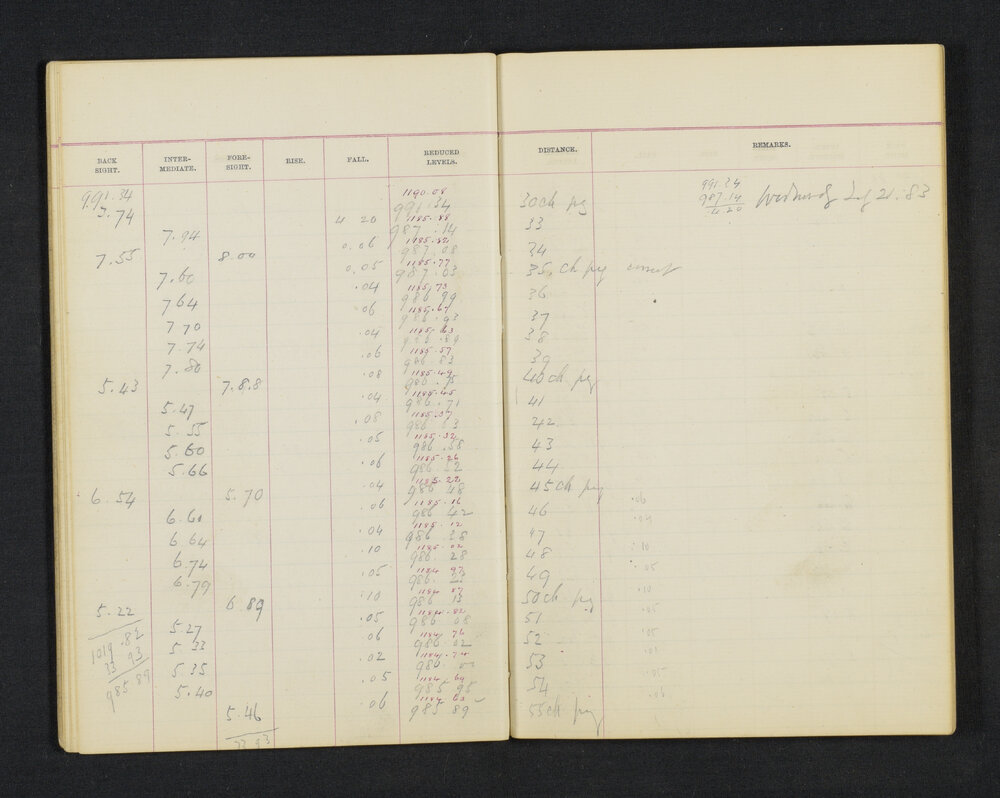 BACK SIGHT. INTER- MEDIATE. FORE- SIGHT. RISE. FALL. REDUCED LEVELS. DISTANCE. REMARKS.
991.34 1190.08 991.34 30ch peg 991.34
3.74 987.14
4 20 1185.88 987.14 33 4 20
7.94 0.06 1185.82 987.08 34
7.55 8.00 0.05 1185.77 987.03 35 ch peg
7.60 .04 1185.73 986 99 36
7 64 .06 1185.67 986 93 37
7 70 .04 1185.63 986 89 38
7.74 .06 1185.57 986 83 39
7.80 .08 1185.49 986.75 40ch peg
5.43 7.8.8 .04 1185.45 986.71 41
5.47 .08 1185.37 986 63 42
5.55 .05 1185.32 986.58 43
5.60 .06 1185.26 986.52 44
5.66 .04 1185.22 986 48 45ch peg
6.54 5.70 .06 1185.16 986 42 46
6.60 .04 1185.12 986 38 47
6 64 .10 1185.02 986 28 48
6.74 .05 1184 97 986.23 49
6.79 .10 1184 87 986 13 50ch peg
5.22 6 89 .05 1184.82 986 08 51
1019.82 5.27 .06 1184 76 986.02 52
33 93 5 33 .02 1184.74 986.00 53
985 89 5.35 .05 1184 69 985 95 54
5.40 .06 1184 63 985 89 55ch peg
5.46
33 93